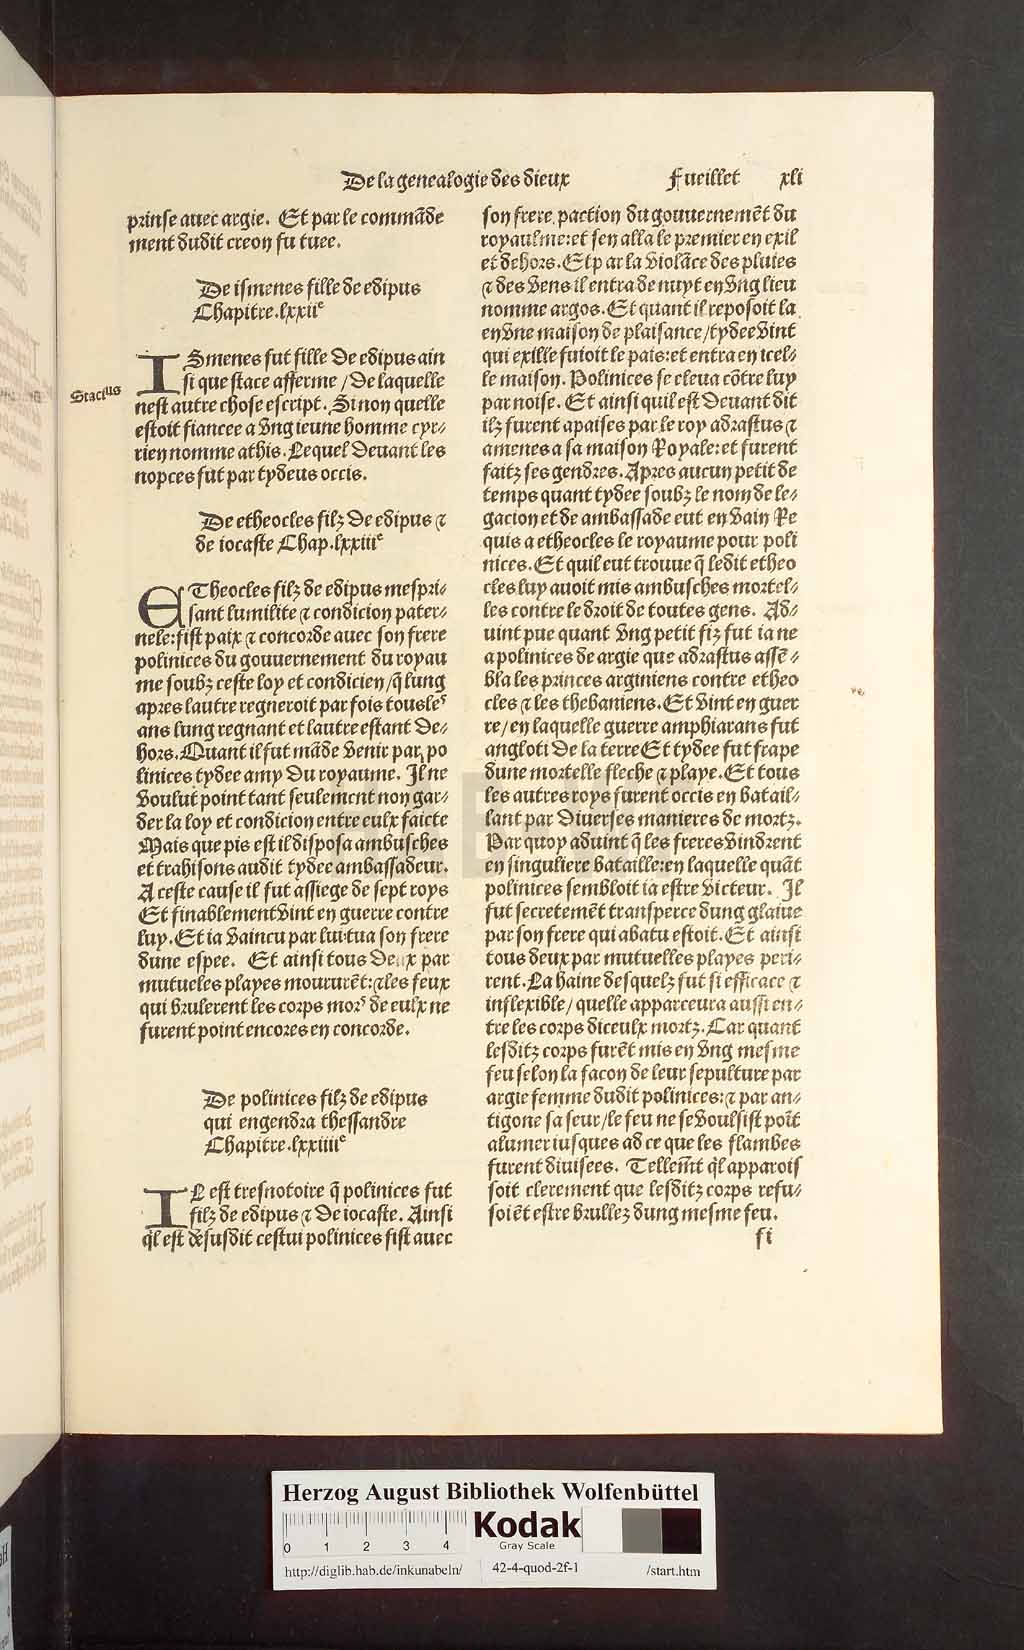 De la genealogie des dieux Fueillet xli
prinse auec argie. Et par le commãde
ment dudit creon fu tuee.
De ismenes fille de edipus
Chapitre.lxxiiᵉ
Stacius
ISmenes fut fille de edipus ain
si que stace afferme / de laquelle
nest autre chose escript. Si non quelle
estoit fiancee a vng ieune homme cyr⸗
rien nomme athis. Lequel deuant les
nopces fut par tydeus occis.
De etheocles filz de edipus ⁊
de iocaste Chap.lxxiiiᵉ
ETheocles filz de edipus mespri⸗
sant lumilite ⁊ condicion pater⸗
nele:fist paix ⁊ concorde auec son frere
polinices du gouuernement du royau
me soubz ceste loy et condicien/q̃ lung
apres lautre regneroit par fois tousleˢ
ans lung regnant et lautre estant de⸗
hors. Quant il fut mãde venir par po
linices tydee amy du royaume. Il ne
voulut point tant seulement non gar⸗
der la loy et condicion entre eulx faicte
Mais que pis est il disposa ambusches
et trahisons audit tydee ambassadeur.
A ceste cause il fut assiege de sept roys
Et finablement vint en guerre contre
luy. Et ia vaincu par lui tua son frere
dune espee. Et ainsi tous deux par
mutueles playes moururẽt:⁊ les feux
qui brulerent les corps morˢ de eulx ne
furent point encores en concorde.
De polinices filz de edipus
qui engendra thessandre
Chapitre.lxxiiiiᵉ
IL est tresnotoire q̃ polinices fut
filz de edipus ⁊ de iocaste. Ainsi
ql̃ est dẽsusdit cestui polinices fist auec
son frere paction du gouuernemẽt du
royaulme:et sen alla le premier en exil
et dehors. Et par la violãce des pluies
⁊ des vens il entra de nuyt en vng lieu
nomme argos. Et quant il reposoit la
en vne maison de plaisance/tydee vint
qui exille fuioit le pais:et entra en icel⸗
le maison. Polinices se eleua cõtre luy
par noise. Et ainsi quil est deuant dit
ilz furent apaises par le roy adrastus ⁊
amenes a sa maison Royale:et furent
faitz ses gendres. Apres aucun petit de
temps quant tydee soubz le nom de le⸗
gacion et de ambassade eut en vain Re
quis a etheocles le royaume pour poli
nices. Et quil eut trouue q̃ ledit etheo
cles luy auoit mis ambusches mortel⸗
les contre le droit de toutes gens. Ad⸗
uint pue quant vng petit fiz fut ia ne
a polinices de argie que adrastus assẽ⸗
bla les princes arginiens contre etheo
cles ⁊ les thebaniens. Et vint en guer
re/en laquelle guerre amphiarans fut
angloti de la terre Et tydee fut frape
dune mortelle fleche ⁊ playe. Et tous
les autres roys furent occis en batail⸗
lant par diuerses manieres de mortz.
Par quoy aduint q̃ les freres vindrent
en singuliere bataille:en laquelle quãt
polinices sembloit ia estre victeur. Il
fut secretemẽt transperce dung glaiue
par son frere qui abatu estoit. Et ainsi
tous deux par mutuelles playes peri⸗
rent. La haine desquelz fut si efficace ⁊
inflexible/quelle apparceura aussi en⸗
tre les corps diceulx mortz. Car quant
lesditz corps furẽt mis en vng mesme
feu selon la facon de leur sepulture par
argie femme dudit polinices:⁊ par an⸗
tigone sa seur/le feu ne se voulsist poĩt
alumer iusques ad ce que les flambes
furent diuisees. Tellemẽt ql̃ apparois
soit clerement que lesditz corps refu⸗
soiẽt estre brullez dung mesme feu.
fi
HAB
Herzog August Bibliothek Wolfenbüttel
0 1 2 3 4
Kodak
Gray Scale
http://diglib.hab.de/inkunabeln/ 42-4-quod-2f-1 /start.htm